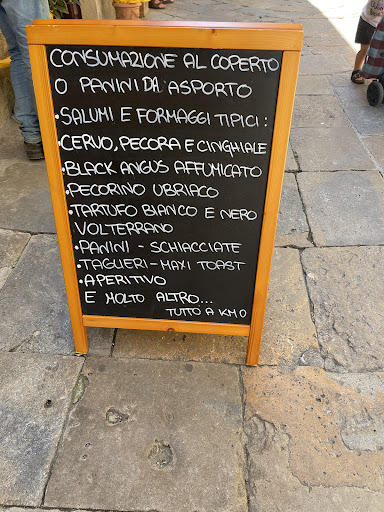 CONSUMAZIONE AL COPERTO
O PANINI DA ASPORTO
•SALUMI E FORMAGGI TIPICI:
•CERVO, PECORA E CINGHIALE
•BLACK ANGUS AFFUMICATO
•PECORINO UBRIACO
•TARTUFO BIANCO E NERO
VOLTERRANO
•PANINI - SCHIACCIATE
•TAGLIERI - MAXI TOAST
•APERITIVO
E MOLTO ALTRO...
TUTTO A KM 0